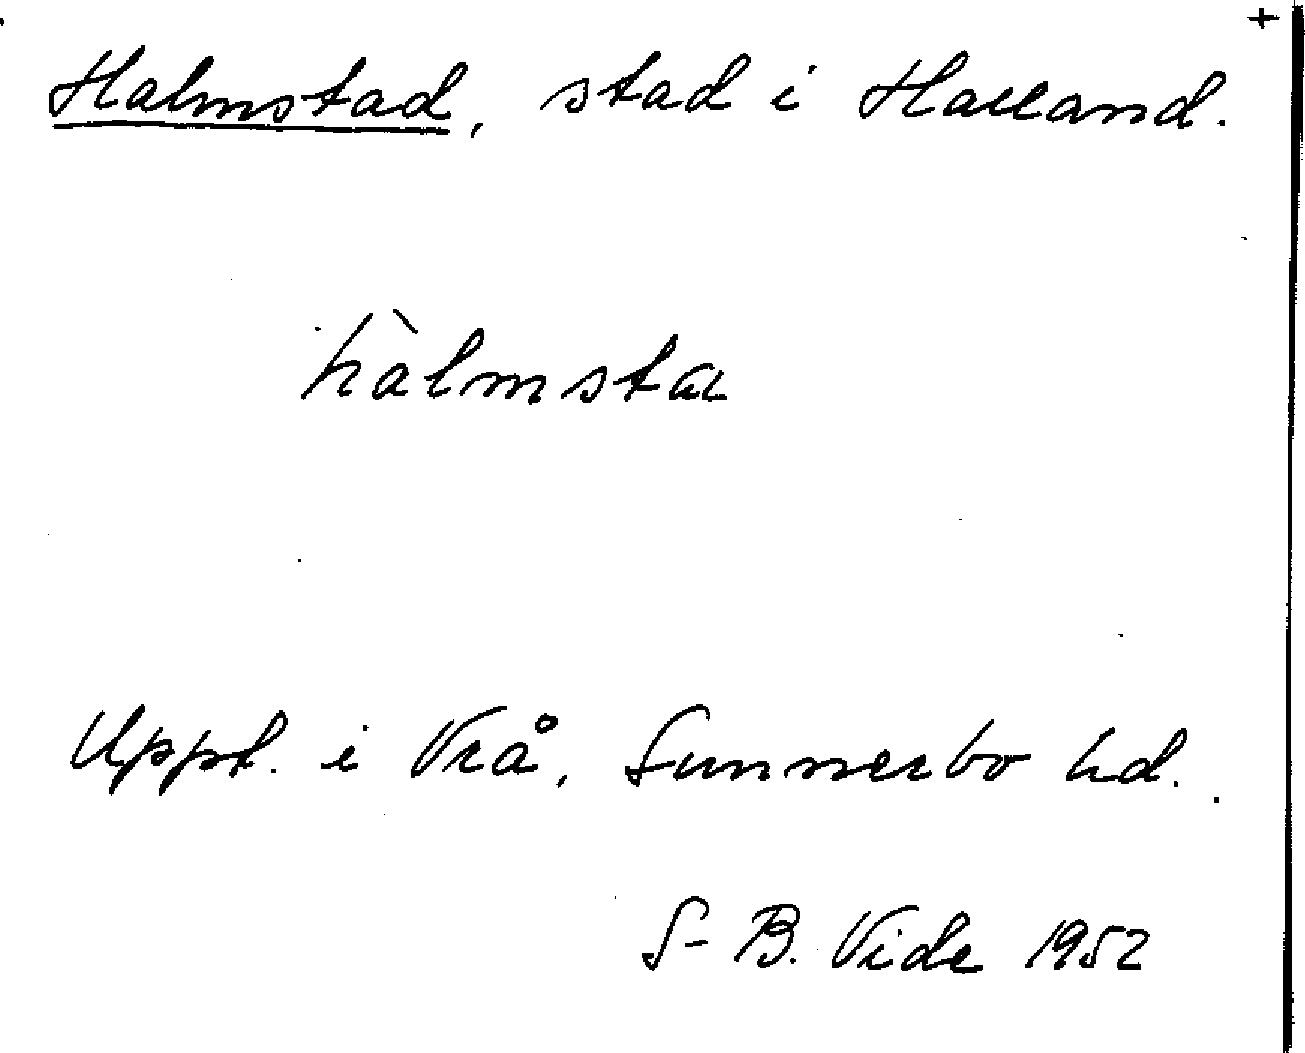 +
Halmstad, stad i Halland.
hàlmsta
Uppt. i Vrå, Sunnerbo hd.
S-B. Vide 1952